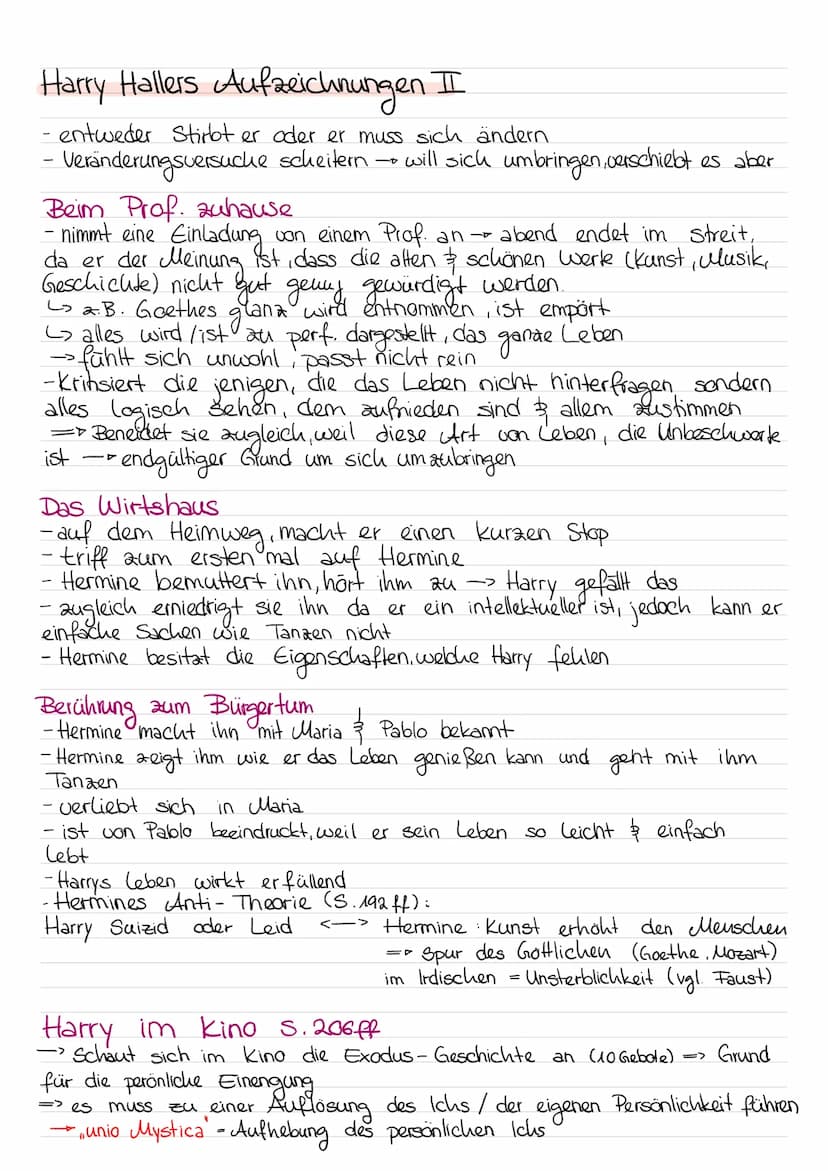 Harry Hallers Aufzeichnungen II
- entweder Stirbt er oder er muss sich ändern
- Veränderungsversuche scheitern → will sich umbringen, verschiebt es aber
Beim Prof. zuhause
- nimmt eine Einladung von einem Prof. an → abend endet im Streit,
da er der Meinung ist, dass die alten & schönen Werke (Kunst, Musik,
Geschichte) nicht gut genug gewürdigt werden.
↳ z.B. Goethes glanz wird entnommen, ist empört
↳ alles wird/ist zu perf. dargestellt, das ganze Leben
→ fühlt sich unwohl, passt nicht rein
- Kritisiert die jenigen, die das Leben nicht hinterfragen sondern
alles logisch sehen, dem zufrieden sind & allem zustimmen
=> Beneidet sie zugleich, weil diese Art von Leben, die Unbeschwerte
ist → endgültiger Grund um sich umzubringen
Das Wirtshaus
- auf dem Heimweg, macht er einen kurzen Stop
- triff zum ersten mal auf Hermine
- Hermine bemuttert ihn, hört ihm zu → Harry gefällt das
- zugleich erniedrigt sie ihn da er ein intellektueller ist, jedoch kann er
einfache Sachen wie Tanzen nicht
- Hermine besitzt die Eigenschaften, welche Harry fehlen
Berührung zum Bürgertum
- Hermine macht ihn mit Maria & Pablo bekannt
- Hermine zeigt ihm wie er das Leben genießen kann und geht mit ihm
Tanzen
- verliebt sich in Maria
- ist von Pablo beeindruckt, weil er sein Leben so leicht & einfach
lebt
- Harrys Leben wirkt erfüllend
- Hermines Anti-Theorie (S. 192 ff):
Harry Suizid oder Leid <-> Hermine: Kunst erhöht den Menschen
=> Spur des Göttlichen (Goethe, Mozart)
im Irdischen = Unsterblichkeit (vgl. Faust)
Harry im Kino S. 206ff
→ Schaut sich im Kino die Exodus-Geschichte an (10 Gebote) => Grund
für die perönliche Einengung
=> es muss zu einer Auflösung des Ichs / der eigenen Persönlichkeit führen
→ „unio Mystica" - Aufhebung des persönlichen Ichs